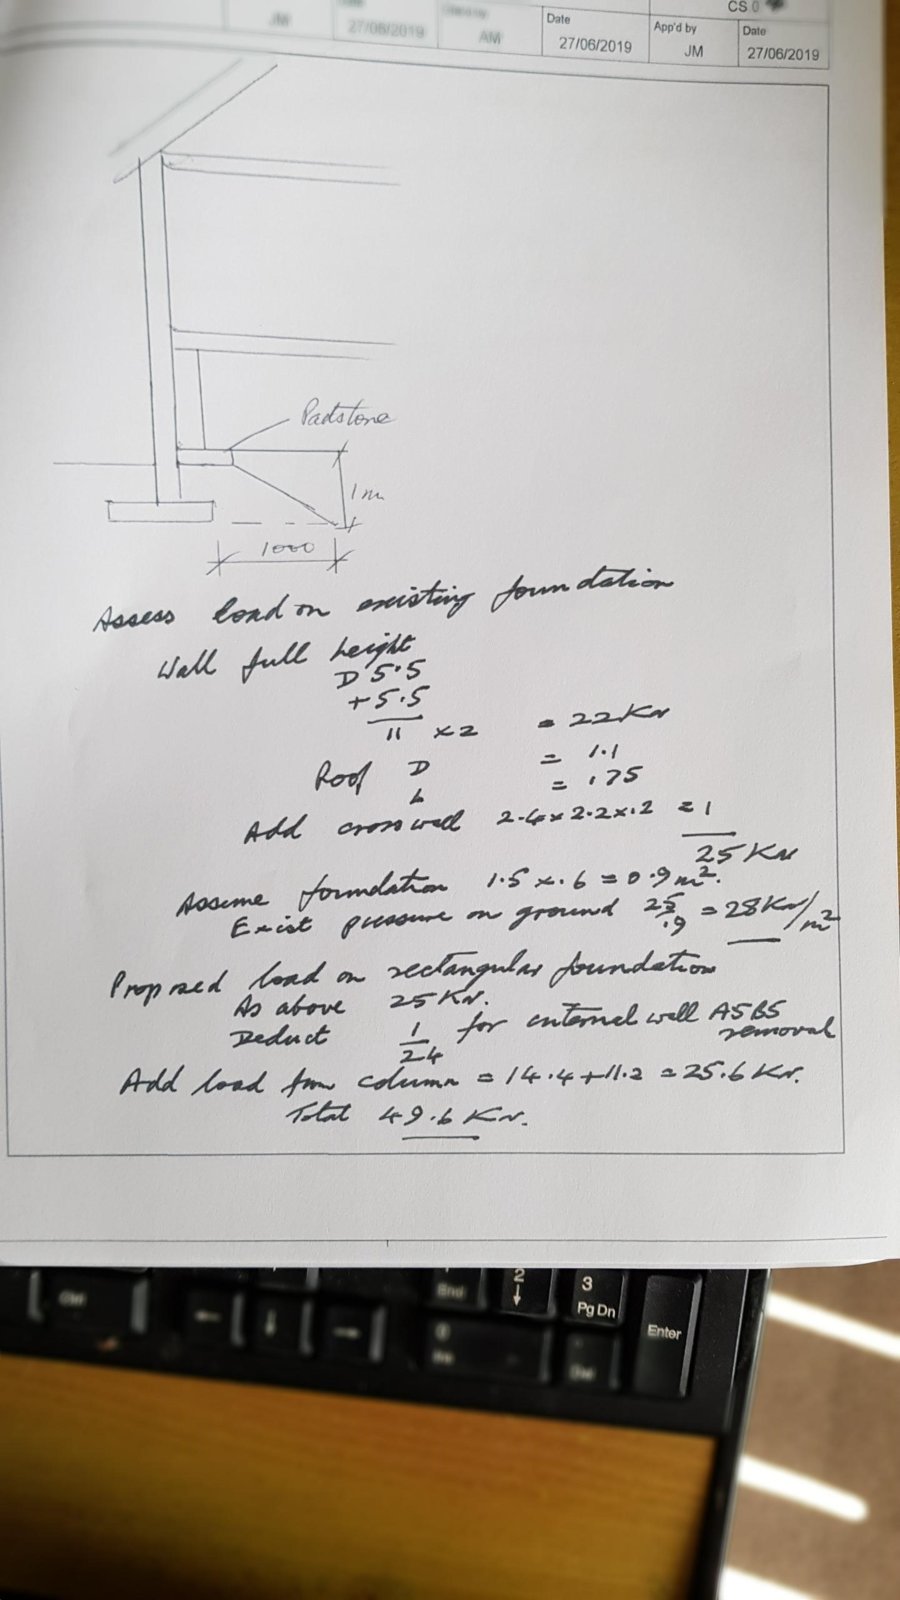 CS 0
JM
27/06/2019
AM
Date
27/06/2019
App'd by
JM
Date
27/06/2019
Padstone
1m
1000
Assess load on existing foundation
Wall full height
D 5.5
+ 5.5
11 x 2 = 22 KN
Roof D = 1.1
L = .75
Add crosswall 2.4 x 2.2 x .2 = 1
25 KN
Assume foundation 1.5 x .6 = 0.9 m².
Exist pressure on ground 25/.9 = 28 KN/m²
Proposed load on rectangular foundation
As above 25 KN.
Deduct 1 for internal wall A5B5 removal
24
Add load from column = 14.4 + 11.2 = 25.6 KN.
Total 49.6 KN.
Ctrl
End
2
3
Pg Dn
Enter
0
Ins
Del